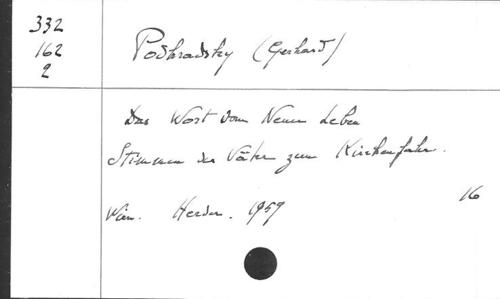 332
162
2
Podhradsky (Gerhard)
Das Wort vom Neuen Leben
Stimmen der Väter zum Kirchenjahr.
Wien. Herder. 1959
16